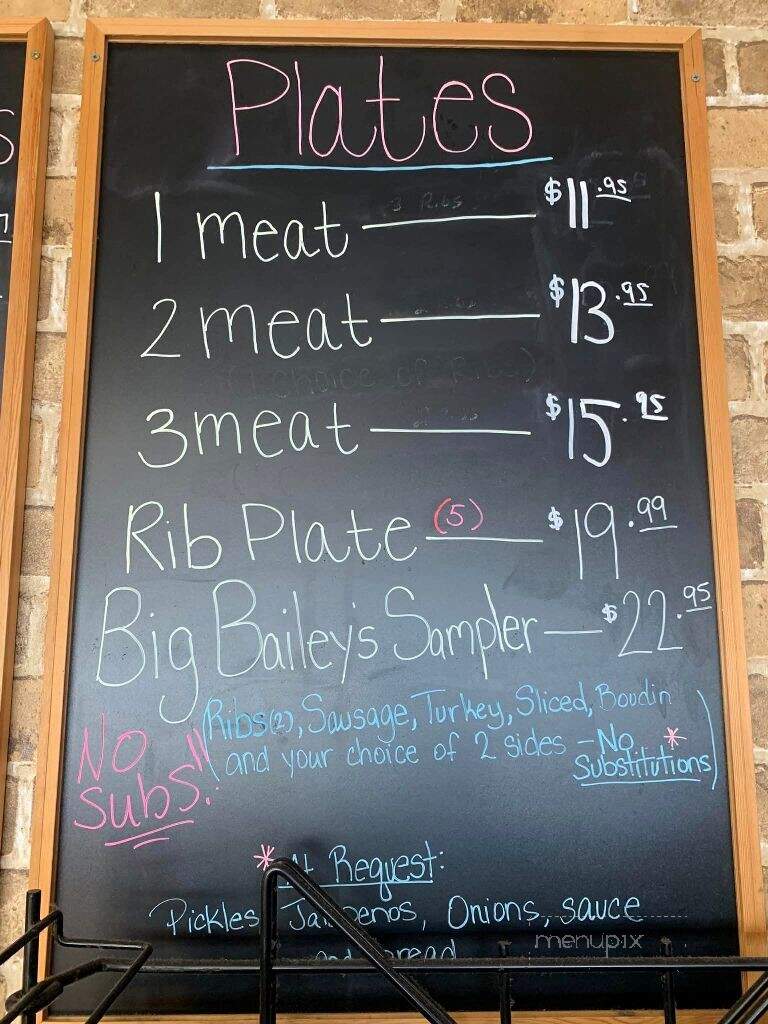 Plates
1 meat $11.95
2 meat $13.95
3 meat $15.95
Rib Plate (5) $19.99
Big Bailey's Sampler — $22.95
(Ribs(2), Sausage, Turkey, Sliced, Boudin
and your choice of 2 sides - No *
Substitutions)
No
subs!!
* At Request:
Pickles, Jalapenos, Onions, sauce
and bread
menupix